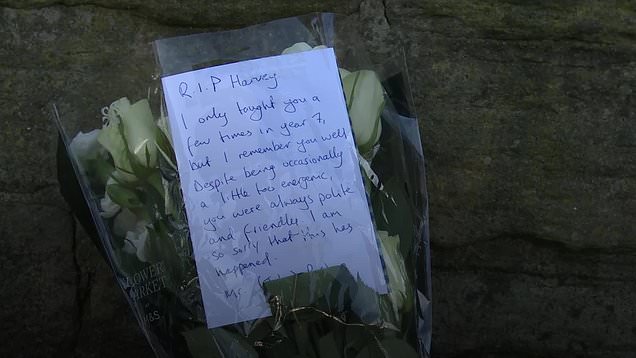 R.I.P Harvey
I only taught you a
few times in year 7,
but I remember you well
Despite being occasionally
a little too energetic,
you were always polite
and friendly. I am
so sorry that this has
happened.
Mr